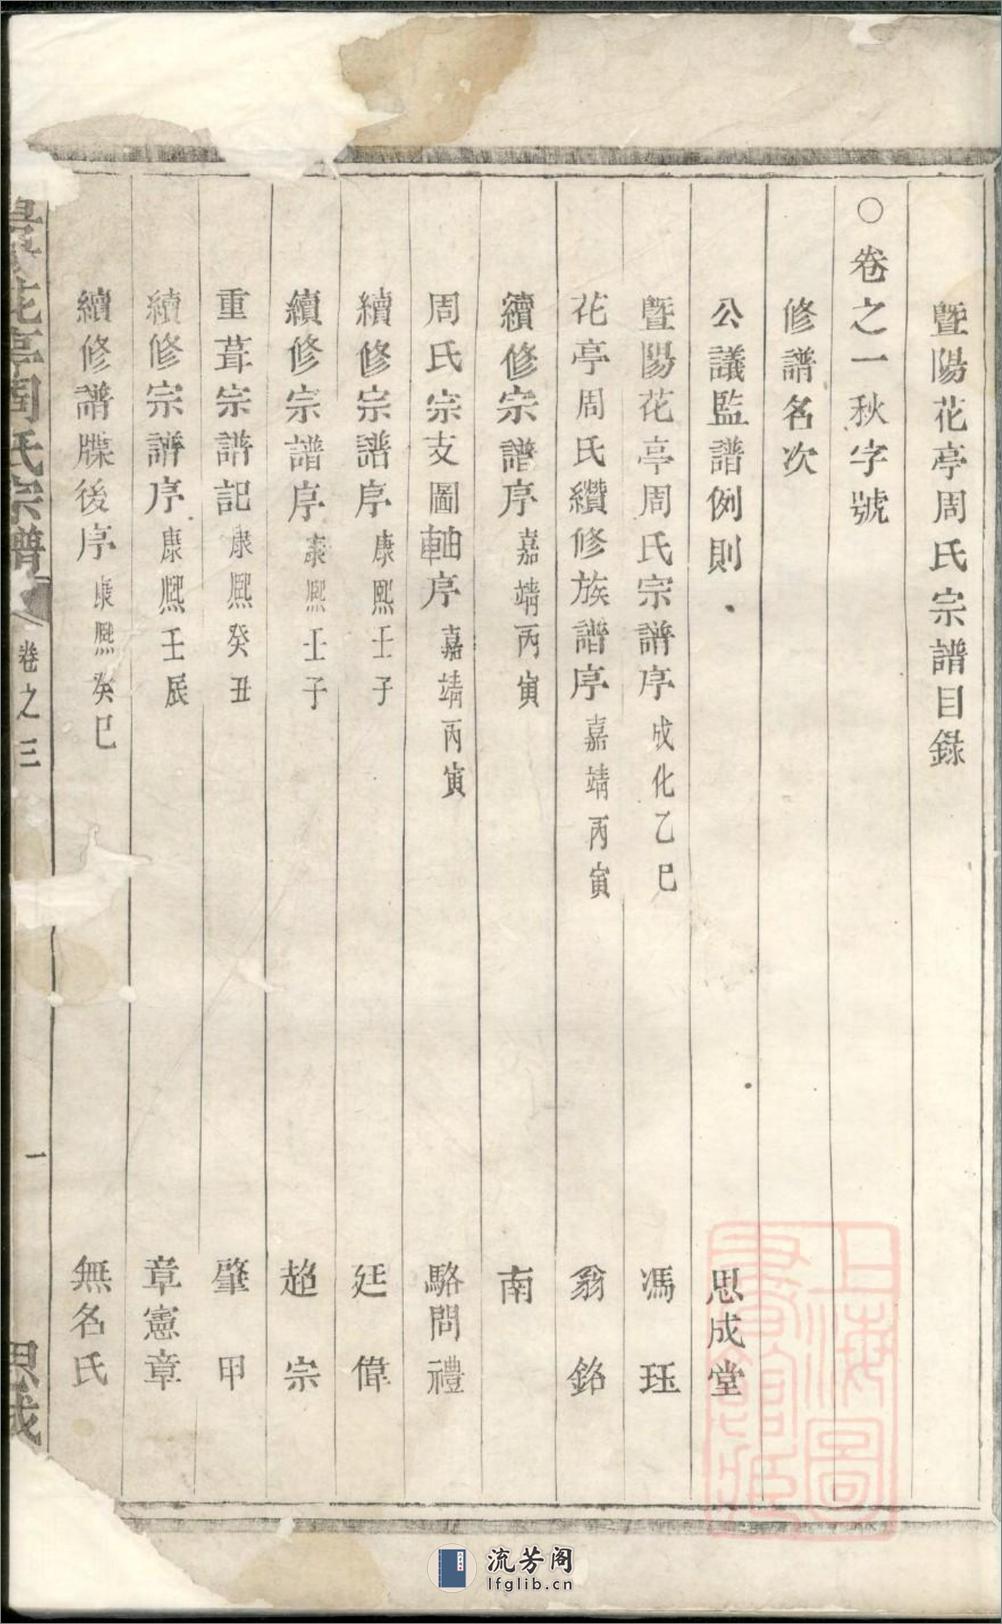 暨陽花亭周氏宗譜目錄
○卷之一秋字號
修譜名次
公議監譜例則 思成堂
暨陽花亭周氏宗譜序 成化乙巳 馮珏
花亭周氏纘修族譜序 嘉靖丙寅 翁銘
續修宗譜序 嘉靖丙寅 南
周氏宗支圖軸序 嘉靖丙寅 駱問禮
續修宗譜序 康熙壬子 廷偉
續修宗譜序 康熙壬子 趙宗
重葺宗譜記 康熙癸丑 肇甲
續修宗譜序 康熙壬辰 章憲章
續修譜牒後序 康熙癸巳 無名氏
花亭周氏宗譜 卷之三 一 思成
上海圖書館藏
流芳阁
lfglib.cn